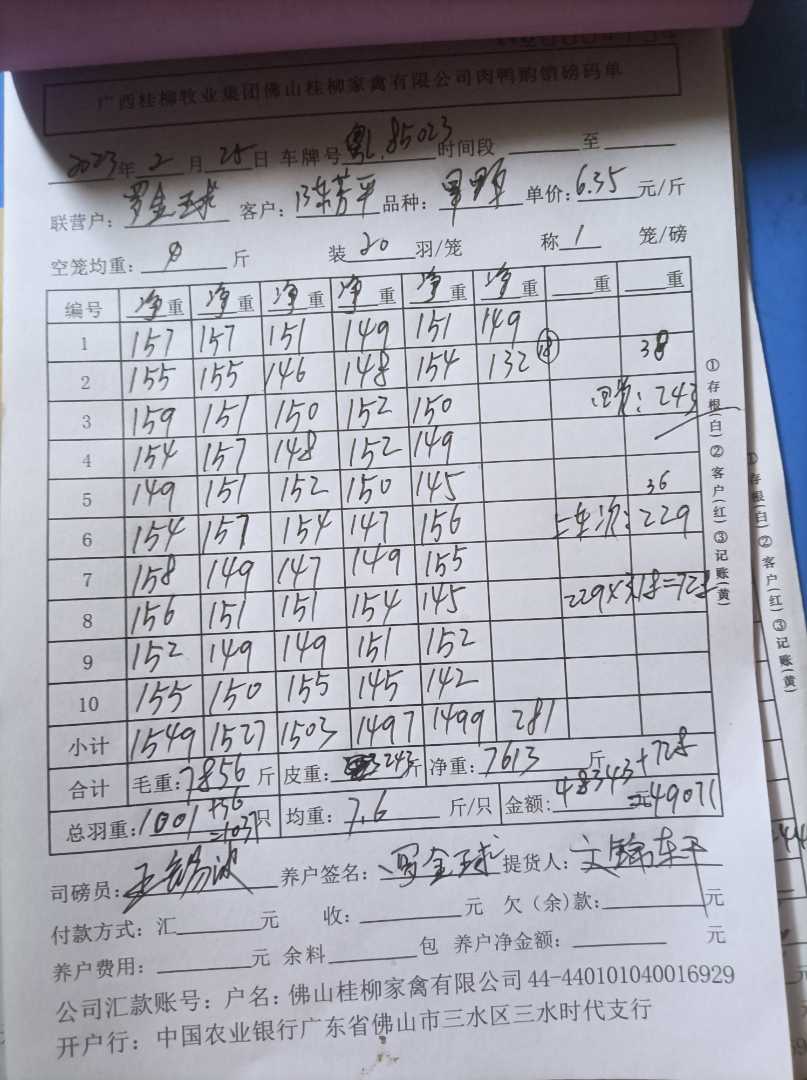 广西桂柳牧业集团佛山桂柳家禽有限公司肉鸭购销磅码单
2023年 2 月 25 日 车牌号 粤L.85023 时间段 至
联营户: 罗金球 客户: 陈芳平 品种: 单价: 6.35 元/斤
空笼均重: 0 斤 装 20 羽/笼 称 1 笼/磅
编号 净重 净重 净重 净重 净重 净重 重 重
1 157 157 151 149 151 149
2 155 155 146 148 154 132 ⑱ 38
3 159 151 150 152 150 243
4 154 157 148 152 149
5 149 151 152 150 145 36
6 154 157 154 147 156 上车次: 229
7 158 149 147 149 155
8 156 151 151 154 145 229×3.18=728
9 152 149 149 151 152
10 155 150 155 145 142
小计 1549 1527 1503 1497 1499 281
合计 毛重: 7856 斤 皮重: 243 斤 净重: 7613 斤
总羽重: 1001 +36 =1037 只 均重: 7.6 斤/只 金额: 48343+728 =49071 元
司磅员: 养户签名: 罗金球 提货人:
付款方式: 汇 元 收: 元 欠(余)款: 元
养户费用: 元 余料 包 养户净金额: 元
公司汇款账号: 户名: 佛山桂柳家禽有限公司 44-440101040016929
开户行: 中国农业银行广东省佛山市三水区三水时代支行
①存根(白)②客户(红)③记账(黄)
①存根(白)②客户(红)③记账(黄)